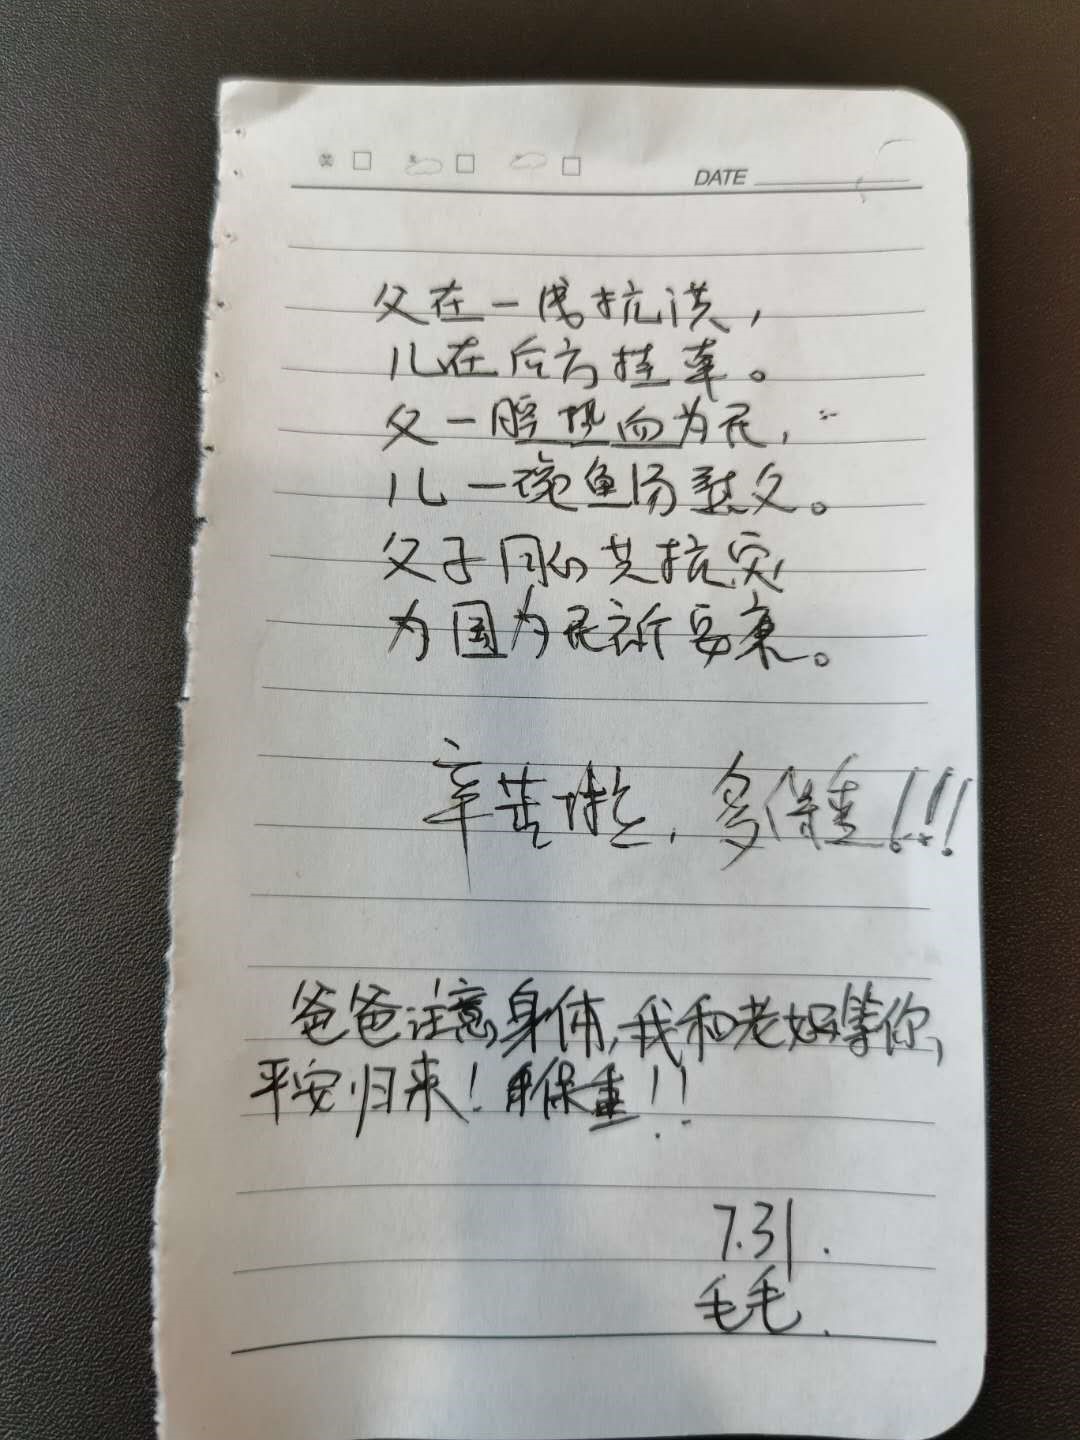 DATE
父在一线抗洪,
儿在后方挂牵。
父一腔热血为民,
儿一碗鱼汤慰父。
父子同心共抗灾
为国为民祈安康。
辛苦啦,多保重!!!
爸爸注意身体,我和老妈等你
平安归来!保重!!
7.31.
毛毛.